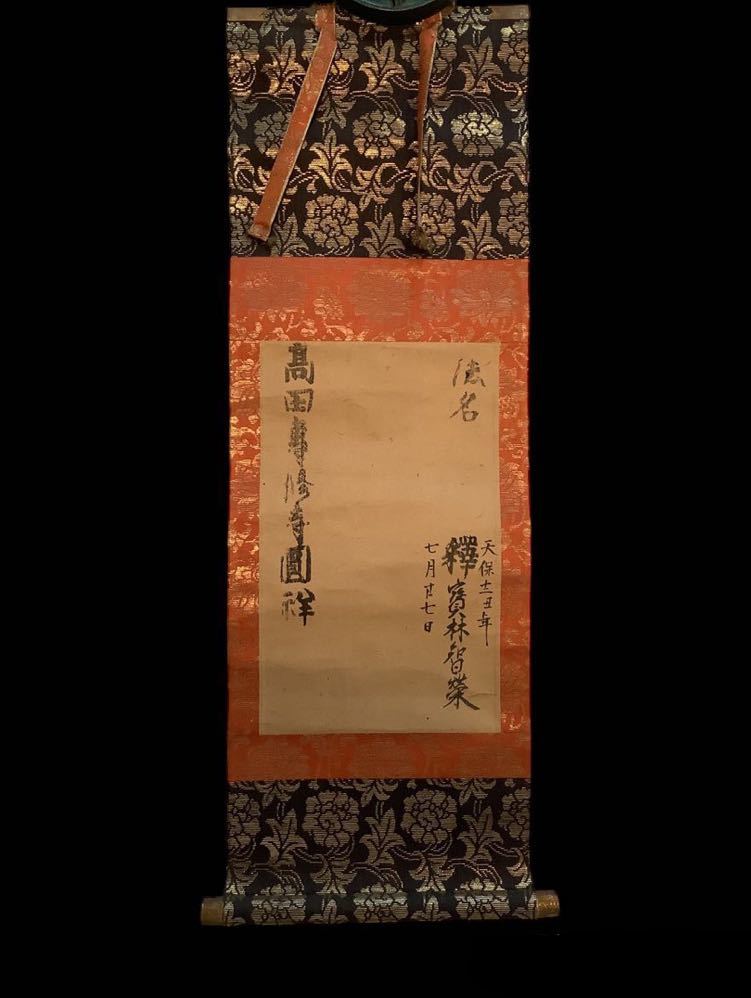 法名
天保十二丑年
釋寳林智榮
七月廿七日
髙田專修寺圓祥